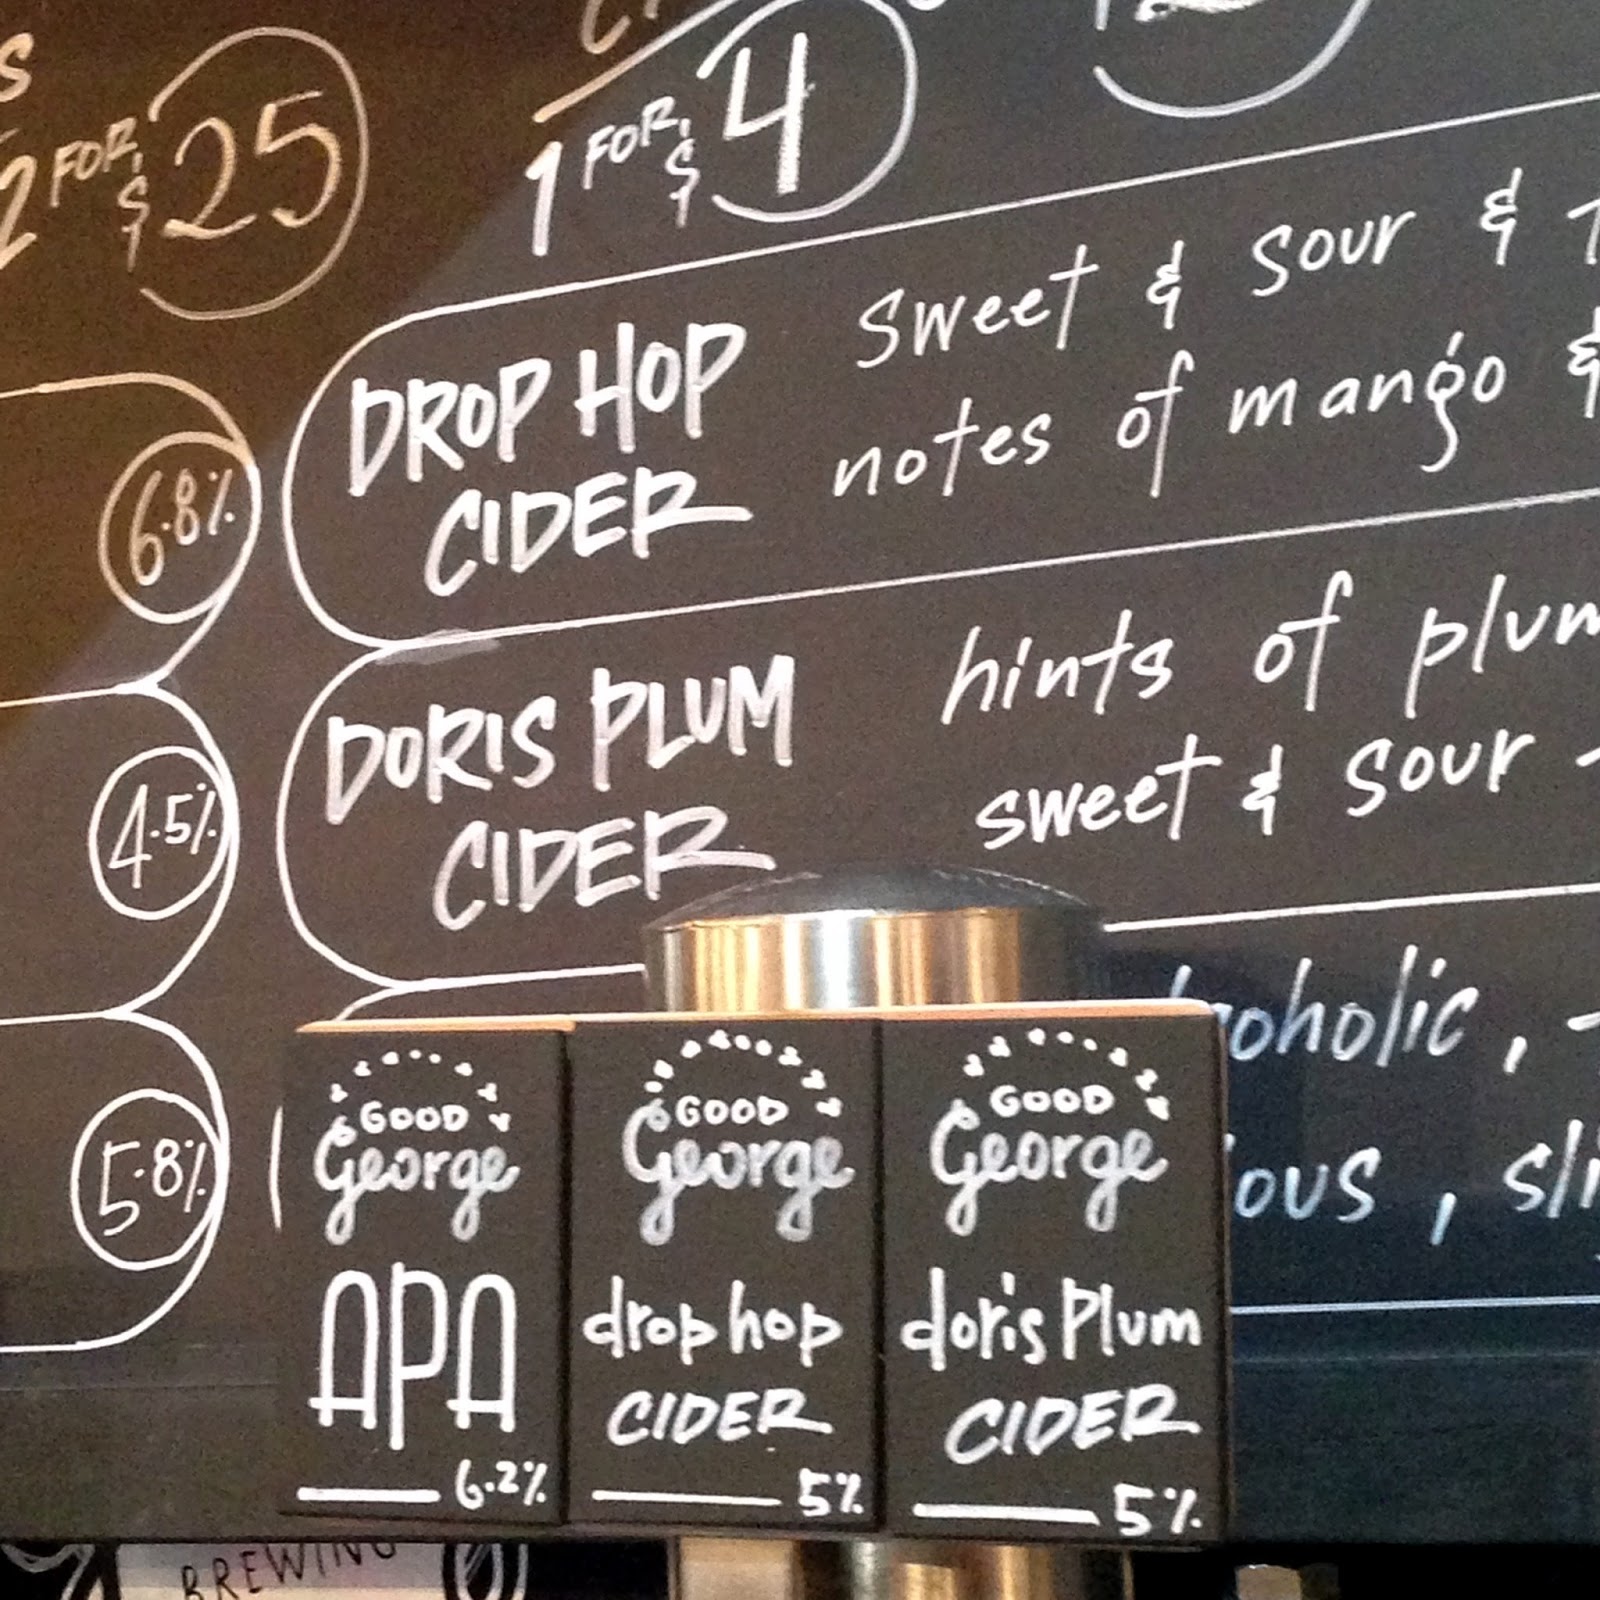 2 FOR $25
1 FOR $4
6.8%
DROP HOP
CIDER
sweet & sour &
notes of mango &
4.5%
DORIS PLUM
CIDER
hints of plum
sweet & sour
5.8%
GOOD
George
APA
6.2%
GOOD
George
drop hop
CIDER
5%
GOOD
George
doris Plum
CIDER
5%
BREWING